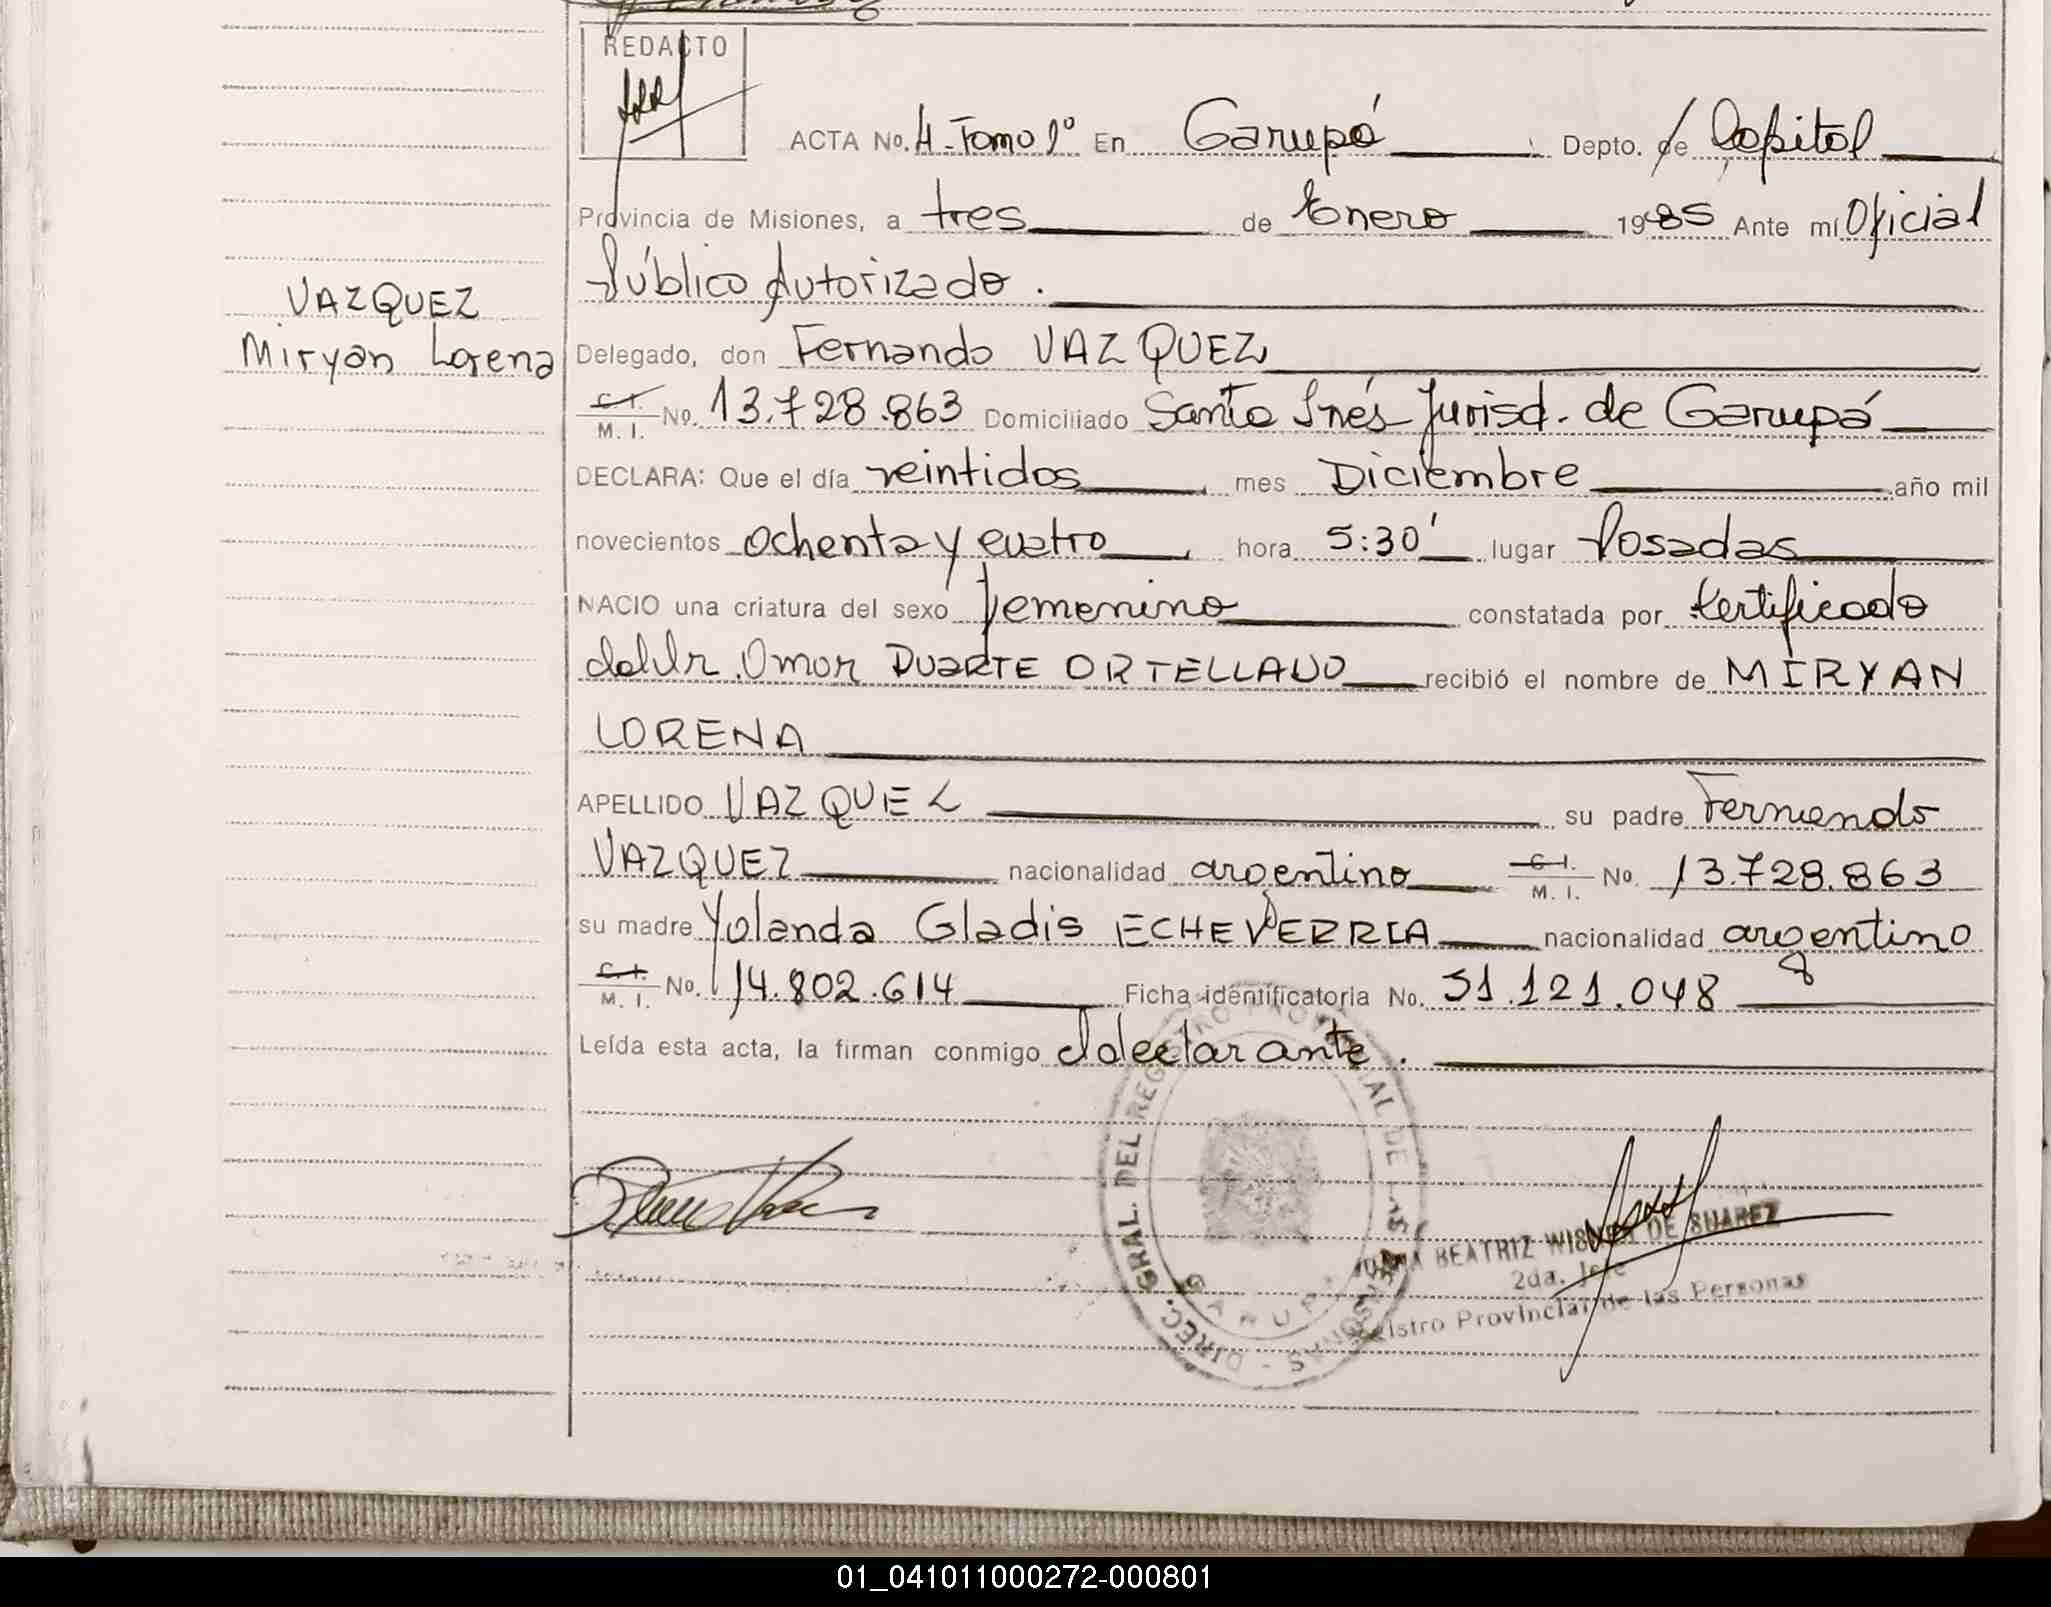 REDACTO
ACTA No. 4 - Tomo 1º En Garupá Depto. de Capital
Provincia de Misiones, a tres de Enero 1985 Ante mí Oficial
Público Autorizado.
VAZQUEZ
Miryan Lorena
Delegado, don Fernando VAZQUEZ
C. I. M. I. No. 13.728.863 Domiciliado Santa Inés Jurisd. de Garupá
DECLARA: Que el día veintidos mes Diciembre año mil
novecientos ochenta y cuatro hora 5:30' lugar Posadas
NACIO una criatura del sexo femenino constatada por Certificado
del Dr. Omar DUARTE ORTELLADO recibió el nombre de MIRYAN
LORENA
APELLIDO VAZQUEZ su padre Fernando
VAZQUEZ nacionalidad argentino C. I. M. I. No. 13.728.863
su madre Yolanda Gladis ECHEVERRIA nacionalidad argentino
C. I. M. I. No. 14.802.614 Ficha identificatoria No. 31.121.048
Leída esta acta, la firman conmigo el declarante.
DIREC. GRAL. DEL REGISTRO PROVINCIAL DE LAS PERSONAS
GARUPA
BEATRIZ DE SUAREZ
2da. Jefe
Registro Provincial de las Personas
01_041011000272-000801